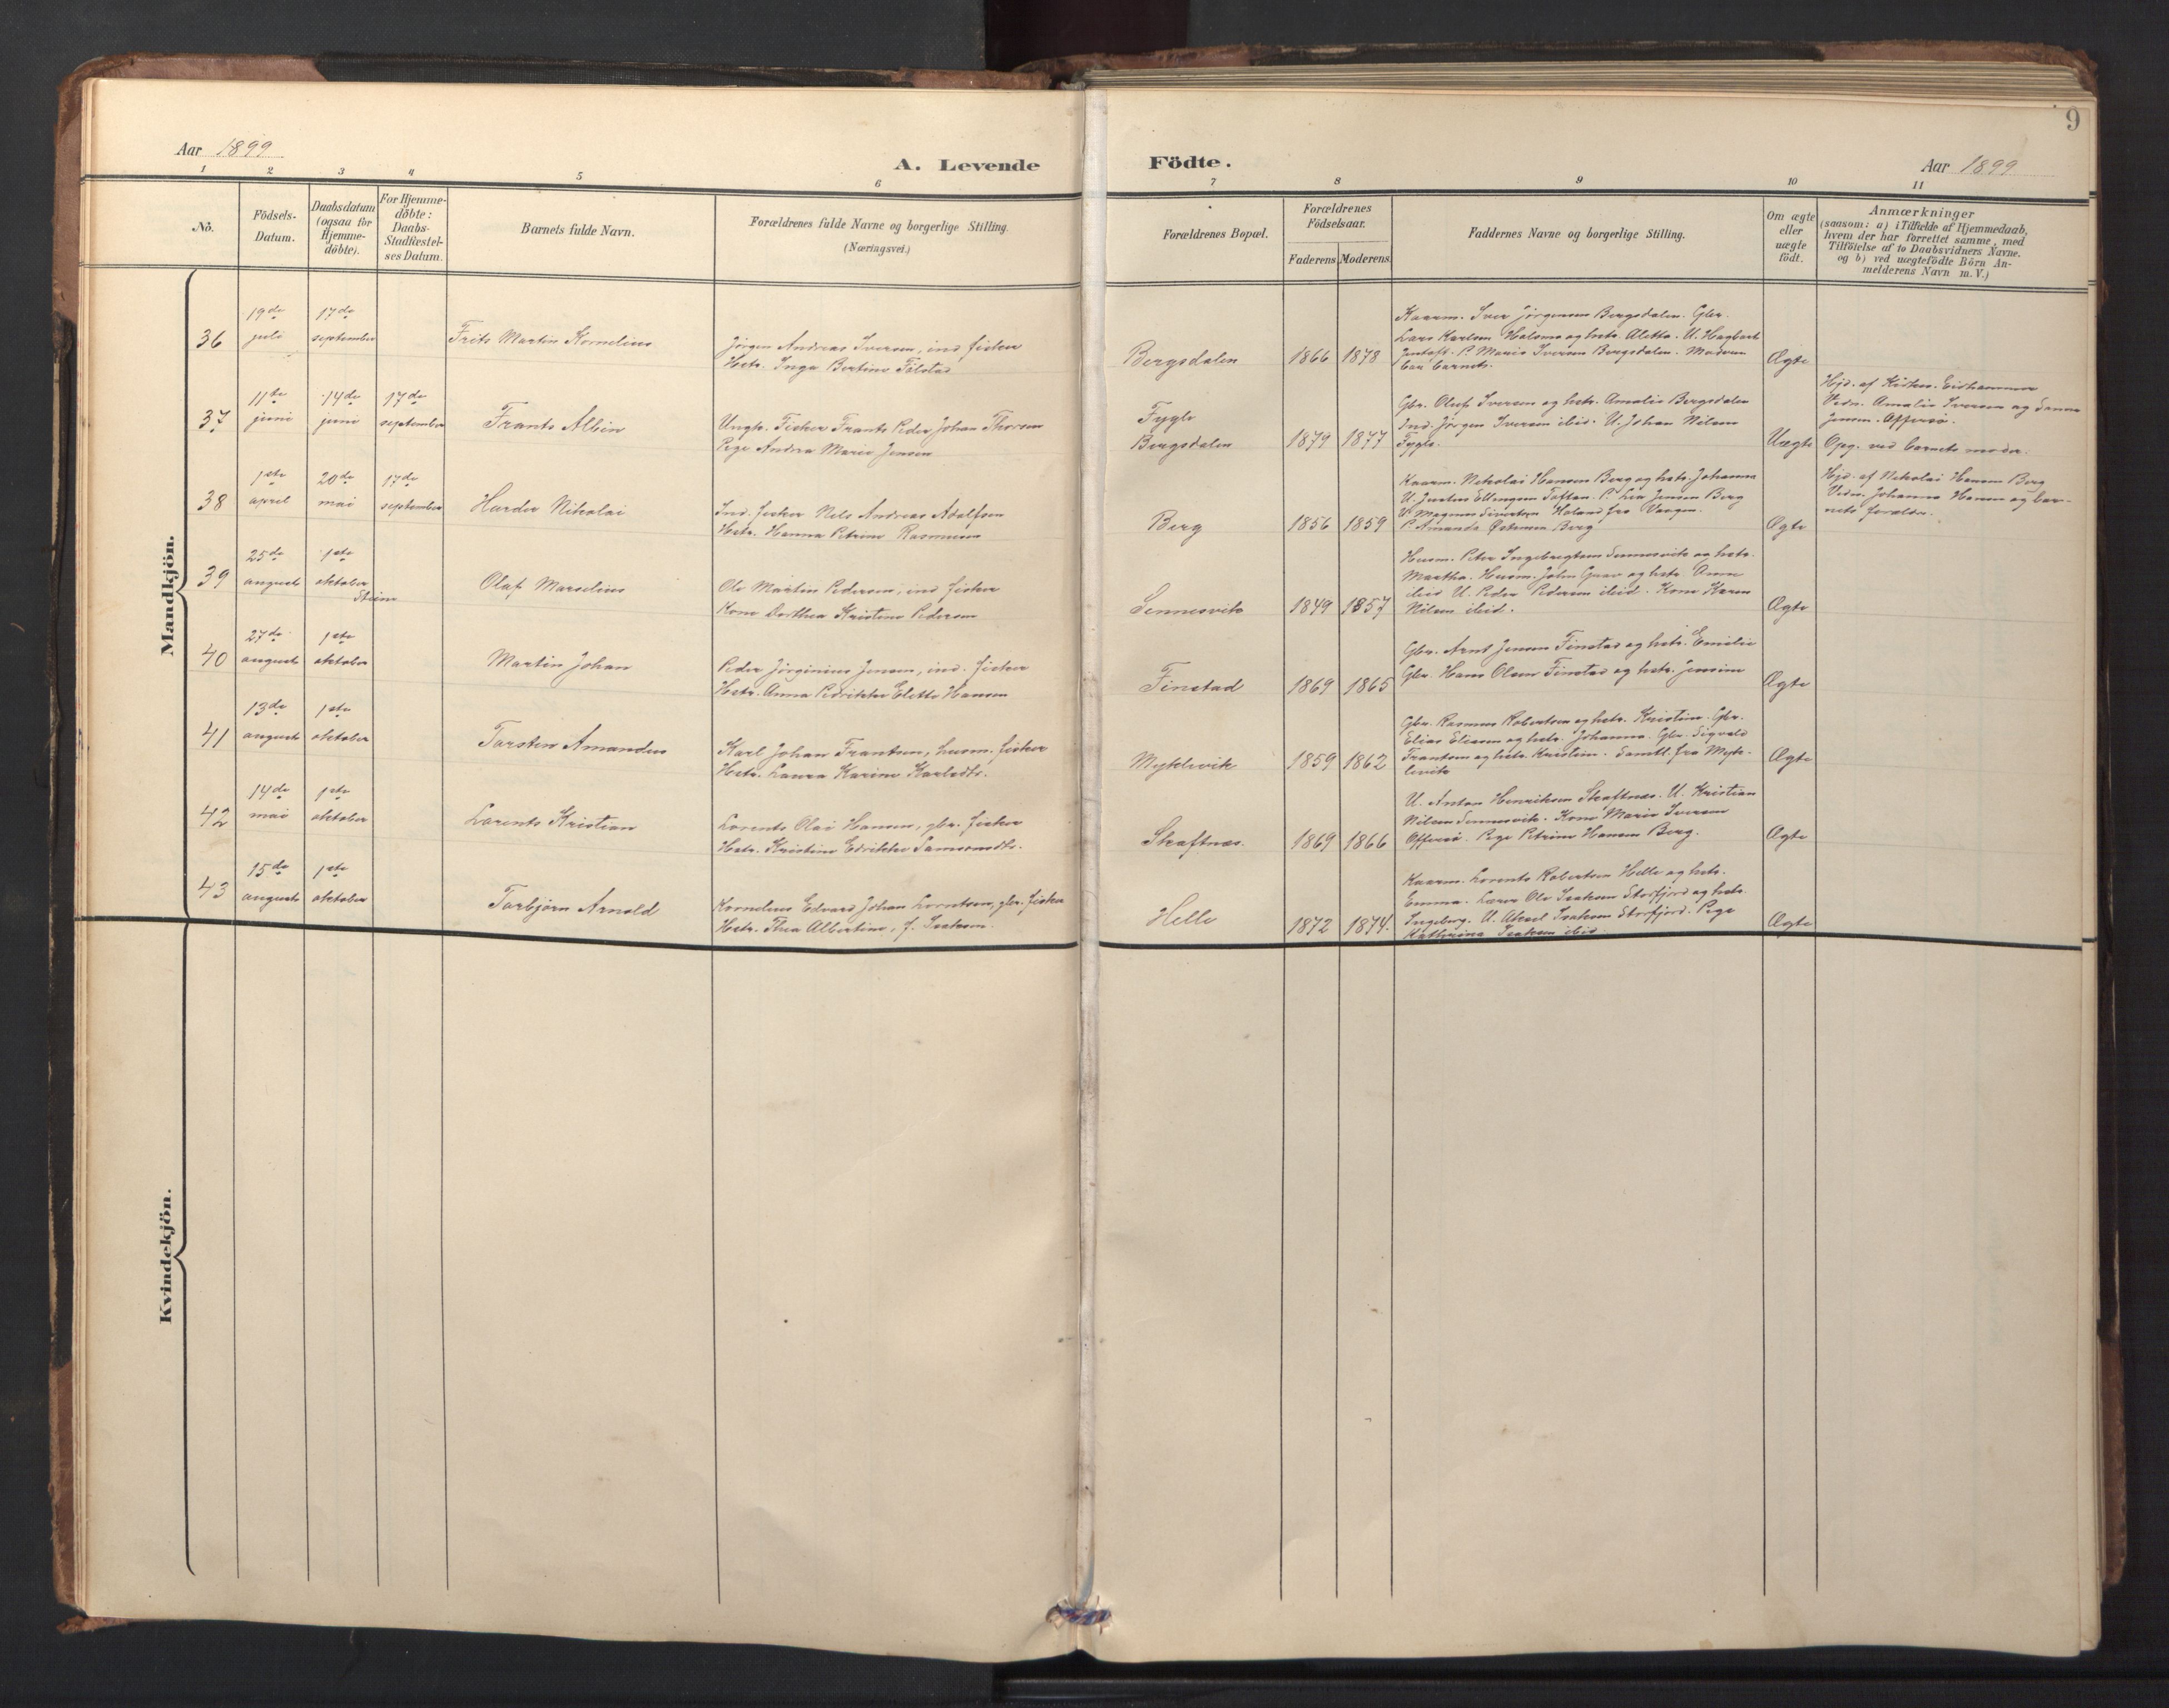 9
Aar 1899
A. Levende
Födte.
Aar 1899
1 2 3 4 5 6 7 8 9 10 11
No.
Födsels-
Datum.
Daabsdatum
(ogsaa för
Hjemme-
döbte).
For Hjemme-
döbte:
Daabs-
Stadfæstel-
ses Datum.
Barnets fulde Navn.
Forældrenes fulde Navne og borgerlige Stilling.
(Næringsvei.)
Forældrenes Bopæl.
Forældrenes
Födselsaar.
Faderens. Moderens.
Faddernes Navne og borgerlige Stilling.
Om ægte
eller
uægte
födt.
Anmærkninger
(saasom: a) i Tilfælde af Hjemmedaab,
hvem der har forrettet samme, med
Tilföielse af to Daabsvidners Navne.
og b) ved uægtefödte Börn An-
melderens Navn m. V.)
Mandkjön.
36
19de
juli
17de
september
Frits Martin Kornelius
Jörgen Andreas Iversen, ind. fisker
Hstr. Inga Bertine
Bergsdalen
1866 1878
Kaarm. Iver Jörgensen Bergsdalen. Gbr.
Lars Karlsen og hstr. Aletta. U. Hagbart
P. Marie Iversen Bergsdalen. Moderen
bar barnet.
Ægte
37
11te
juni
14de
juni
17de
september
Frants Albin
Ungk. Fisker Frants Peder Johan Thoresen
Pige Andrea Marie Jensen
Fygle
Bergsdalen
1879 1877
Gbr. Oluf Iversen og hstr. Amalie Bergsdalen
Ind. Jörgen Iversen ibid. U. Johan Nilsen
Fygle.
Uægte
Hjd. af Kirkes. Eidhammer
Vidn. Amalie Iversen og
Jensen. Offersö.
Opg. ved barnets moder.
38
1ste
april
20de
mai
17de
september
Hurder Nikolai
Ind. fisker Nils Andreas Adolfsen
Hstr. Hanna Petrine Rasmussen
Berg
1856 1859
Kaarm. Nikolai Hansen Berg og hstr. Johanna
U. Justus Ellingsen Toftan. P. Lea Jensen Berg
U. Magnus Sivertsen Holand fra Vaagen.
P. Amanda Berg
Ægte
Hjd. af Nikolai Hansen Berg
Vidn. Johanna Hansen og bar-
nets forældr.
39
25de
august
1ste
oktober
Olaf Marselius
Ole Martin Pedersen, ind. fisker
Kone Dorthea Kristine Pedersen
Sennesvik
1849 1857
Husm. Peter Ingebregtsen Sennesvik og hstr.
Martha. Husm. John og hstr. Anne
ibid U. Peder Pedersen ibid. Kone Karen
Nilsen ibid.
Ægte
40
27de
august
1ste
oktober
Martin Johan
Peder Jörginius Jensen, ind. fisker
Hstr. Anna Pedrikke Elette Hansen
Finstad
1869 1865
Gbr. Arnt Jensen Finstad og hstr. Emilie
Gbr. Hans Olsen Finstad og hstr. Jensine
Ægte
41
13de
august
1ste
oktober
Torsten Amandus
Karl Johan Frantsen, husm. fisker
Hstr. Laura Karine Karlsdtr.
Myklevik
1859 1862
Gbr. Rasmus Robertsen og hstr. Kristine. Gbr.
Elias Eliasen og hstr. Johanna. Gbr. Sigvald
Frantsen og hstr. Kristine. Samtl. fra Myk-
levik
Ægte
42
14de
mai
1ste
oktober
Lorents Kristian
Lorents Olai Hansen, gbr. fisker
Hstr. Kristine Edrikke Samsonsdtr.
Skaftnæs.
1869 1866
U. Anton Henriksen Skaftnæs. U. Kristian
Nilsen Sennesvik. Kone Marie Iversen
Offersö. Pige Petrine Hansen Berg.
Ægte
43
15de
august
1ste
oktober
Torbjörn Arnold
Kornelius Edvard Johan Lorntsen, gbr. fisker
Hstr. Thea Albertine, f. Isaksen.
Helle
1872 1874.
Kaarm. Lorents Robertsen Helle og hstr.
Emma. Lærer Ole Isaksen Storfjord og hstr.
Ingeborg. U. Aksel Isaksen Storfjord. Pige
Kathrina Isaksen ibid.
Ægte
Kvindekjön.